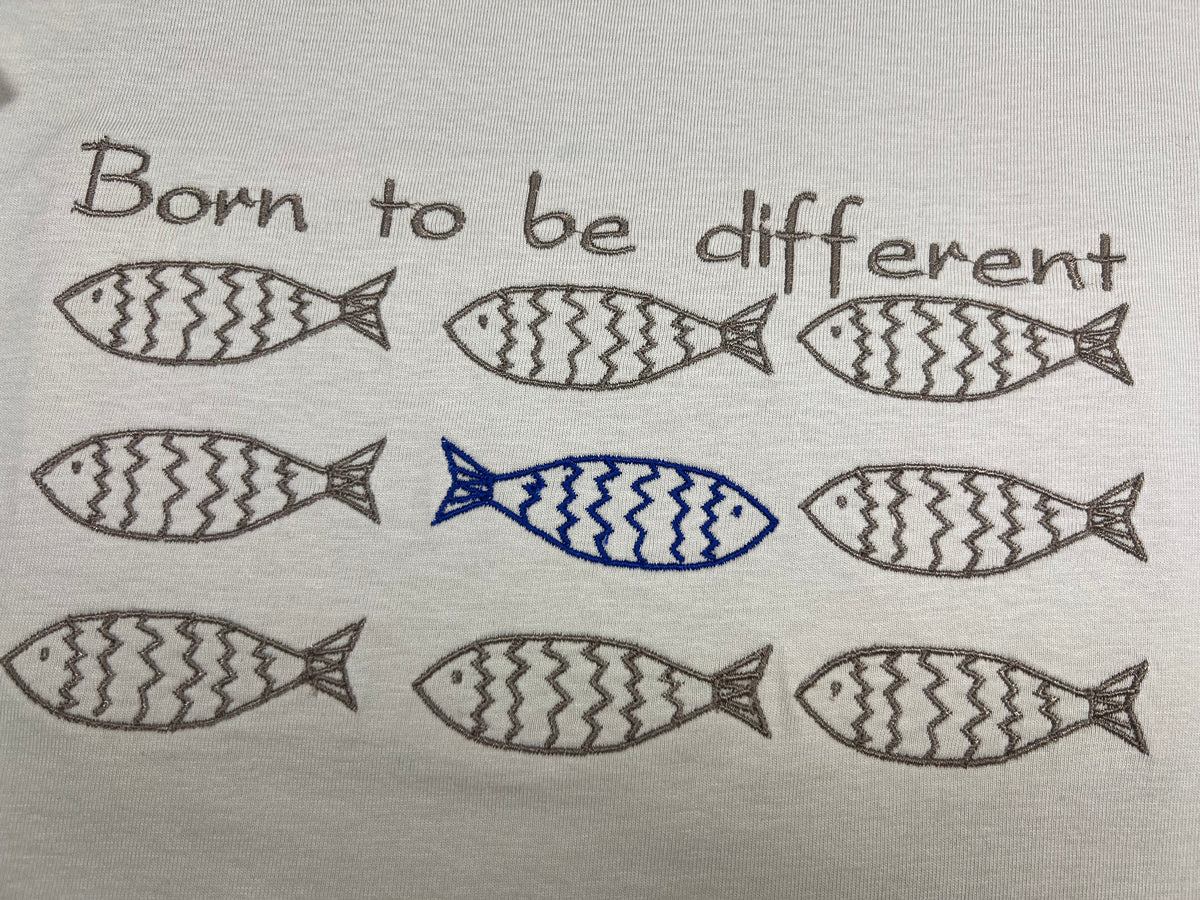 Born to be different